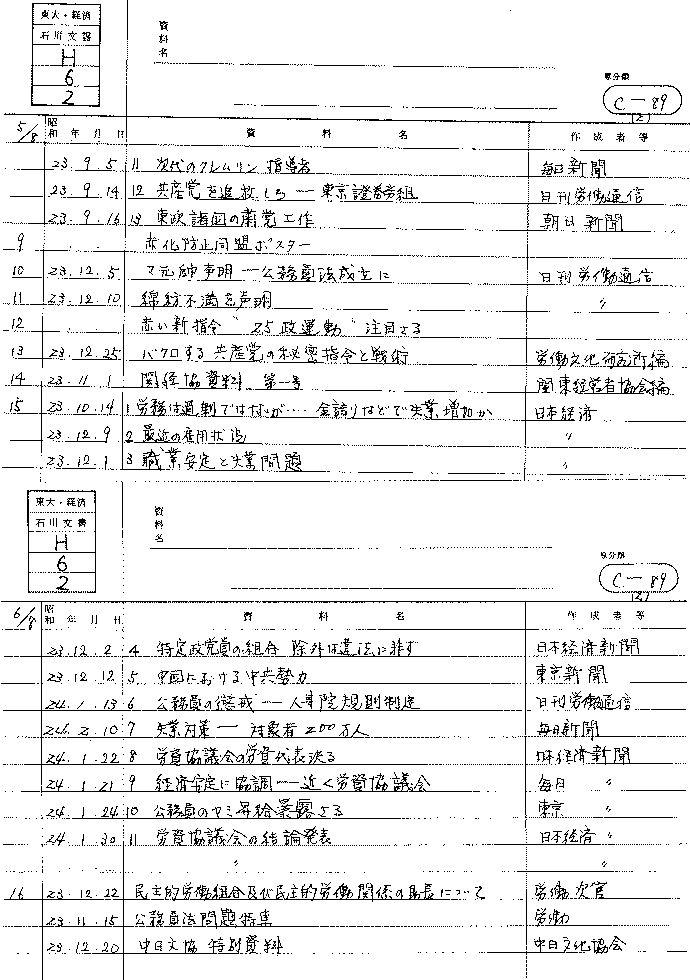 東大・経済
石川文書
H
6
2
資料名
原分類
C－89
(2)
5/8
昭和 年 月 日 資 料 名 作 成 者 等
23. 9. 5 11 次代のクレムリン指導者 毎日新聞
23. 9. 14 12 共産党を追放しろ ー 東京證券労組 日刊労働通信
23. 9. 16 13 東欧諸国の 党工作 朝日新聞
9 . . 赤化防止同盟ポスター
10 23. 12. 5 マ元帥声明 ー 公務員法成立に 日刊労働通信
11 23. 12. 10 綿紡不満を声明 〃
12 . . 赤い新指令 "25政運動" 注目さる
13 23. 12. 25 バクロする共産党の秘密指令と戦術 労働文化研究所編
14 23. 11. 1 関経協資料 第一号 関東経営者協会編
15 23. 10. 14 1 労務は過剰ではないが…‥ 金詰りなどで失業増加か 日本経済
23. 12. 9 2 最近の雇用状況 〃
23. 12. 1 3 職業安定と失業問題 〃
東大・経済
石川文書
H
6
2
資料名
原分類
C－89
(2)
6/8
昭和 年 月 日 資 料 名 作 成 者 等
23. 12. 2 4 特定政党員の組合 除外は違法に非ず 日本経済新聞
23. 12. 12 5 中国における中共勢力 東京新聞
24. 1. 13 6 公務員の懲戒 ー 人事院規則制定 日刊労働通信
24. 2. 10 7 失業対策 ー 対象者200万人 毎日新聞
24. 1. 22 8 労資協議会の労資代表決る 日本経済新聞
24. 1. 21 9 経済安定に協調 ー 近く労資協議会 毎日 〃
24. 1. 24 10 公務員のヤミ昇給暴露さる 東京 〃
24. 1. 30 11 労資協議会の結論発表 日本経済 〃
〃 〃
16 23. 12. 22 民主的労働組合及び民主的労働関係の助長について 労働次官
23. 11. 15 公務員法問題特集 労働
23. 12. 20 中日文協 特別資料 中日文化協会